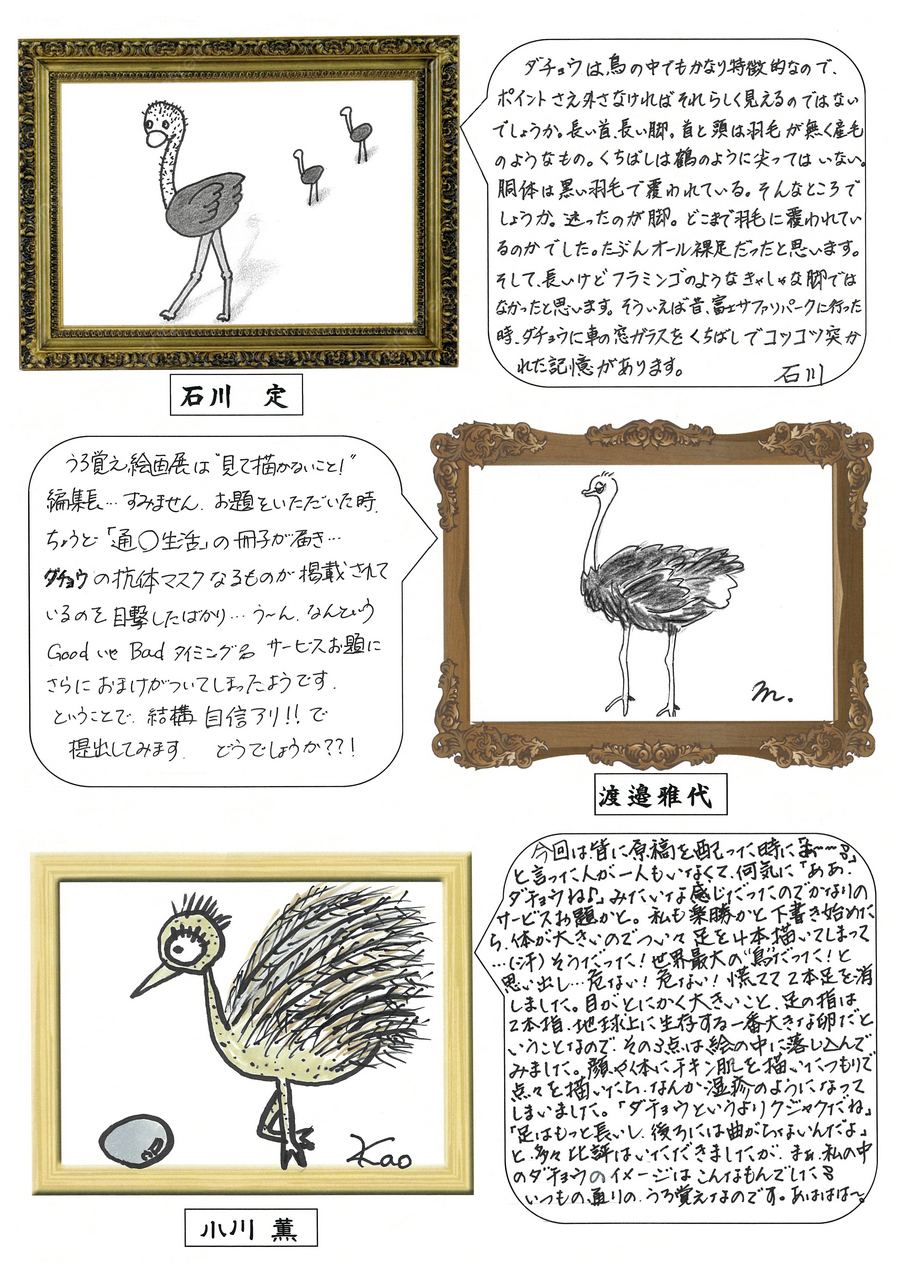 ダチョウは、鳥の中でもかなり特徴的なので、
ポイントさえ外さなければそれらしく見えるのではない
でしょうか。長い首、長い脚。首と頭は羽毛が無く産毛
のようなもの。くちばしは鶴のように尖ってはいない。
胴体は黒い羽毛で覆われている。そんなところで
しょうか。迷ったのが脚。どこまで羽毛に覆われてい
るのかでした。たぶんオール裸足だったと思います。
そして、長いけどフラミンゴのようなきゃしゃな脚では
なかったと思います。そういえば昔、富士サファリパークに行った
時、ダチョウに車の窓ガラスをくちばしでコツコツ突か
れた記憶があります。
石川
石川 定
うろ覚え絵画展は"見て描かないこと!"
編集長…すみません。お題をいただいた時、
ちょうど「通〇生活」の冊子が届き…
ダチョウの抗体マスクなるものが掲載されて
いるのを目撃したばかり…う〜ん、なんという
Good いや Bad タイミング名 サービスお題に
さらにおまけがついてしまったようです。
ということで、結構自信アリ!!で
提出してみます。 どうでしょうか??!
m.
渡邉雅代
今回は皆に原稿を配った時に
と言った人が一人もいなくて、何気に「ああ、
ダチョウね♪」みたいな感じだったのでかなりの
サービスお題かと。私も楽勝かと下書き始めた
ら、体が大きいのでついつい足を4本描いてしまって
…(汗)そうだった!世界最大の"鳥"だった!と
思い出し…危ない!危ない!慌てて2本足を消
しました。目がとにかく大きいこと、足の指は
2本指、地球上に生存する一番大きな卵だと
いうことなので、その3点は絵の中に落し込んで
みました。顔や体にチキン肌を描いたつもりで
点々を描いたら、なんか湿疹のようになって
しまいました。「ダチョウというよりクジャクだね」
「足はもっと長いし、後ろには曲がらないんだよ」
と、多々比評はいただきましたが、まぁ、私の中
のダチョウのイメージはこんなもんでした
いつもの通りの、うろ覚えなのです。あははは〜。
Kao
小川 薫